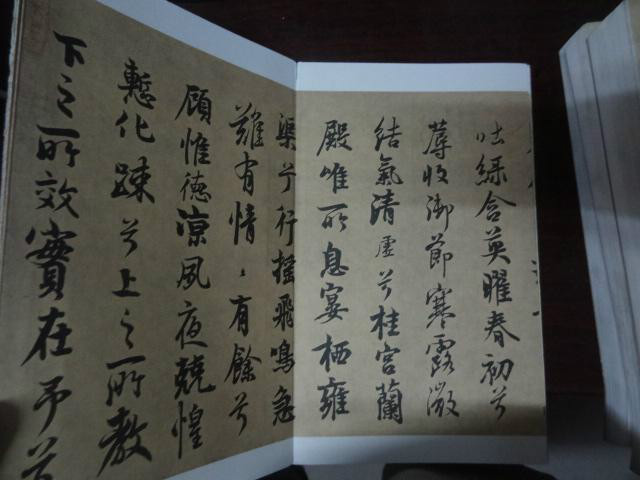 吐綠含英曜春初兮
蓐收御節寒露濃
結氣清虛兮桂宮蘭
殿唯所息宴栖雍
渠兮行搖飛鳴急
難有情情有餘兮
顧惟德涼夙夜兢惶
慙化踈兮上之所教
下之所效實在予兮